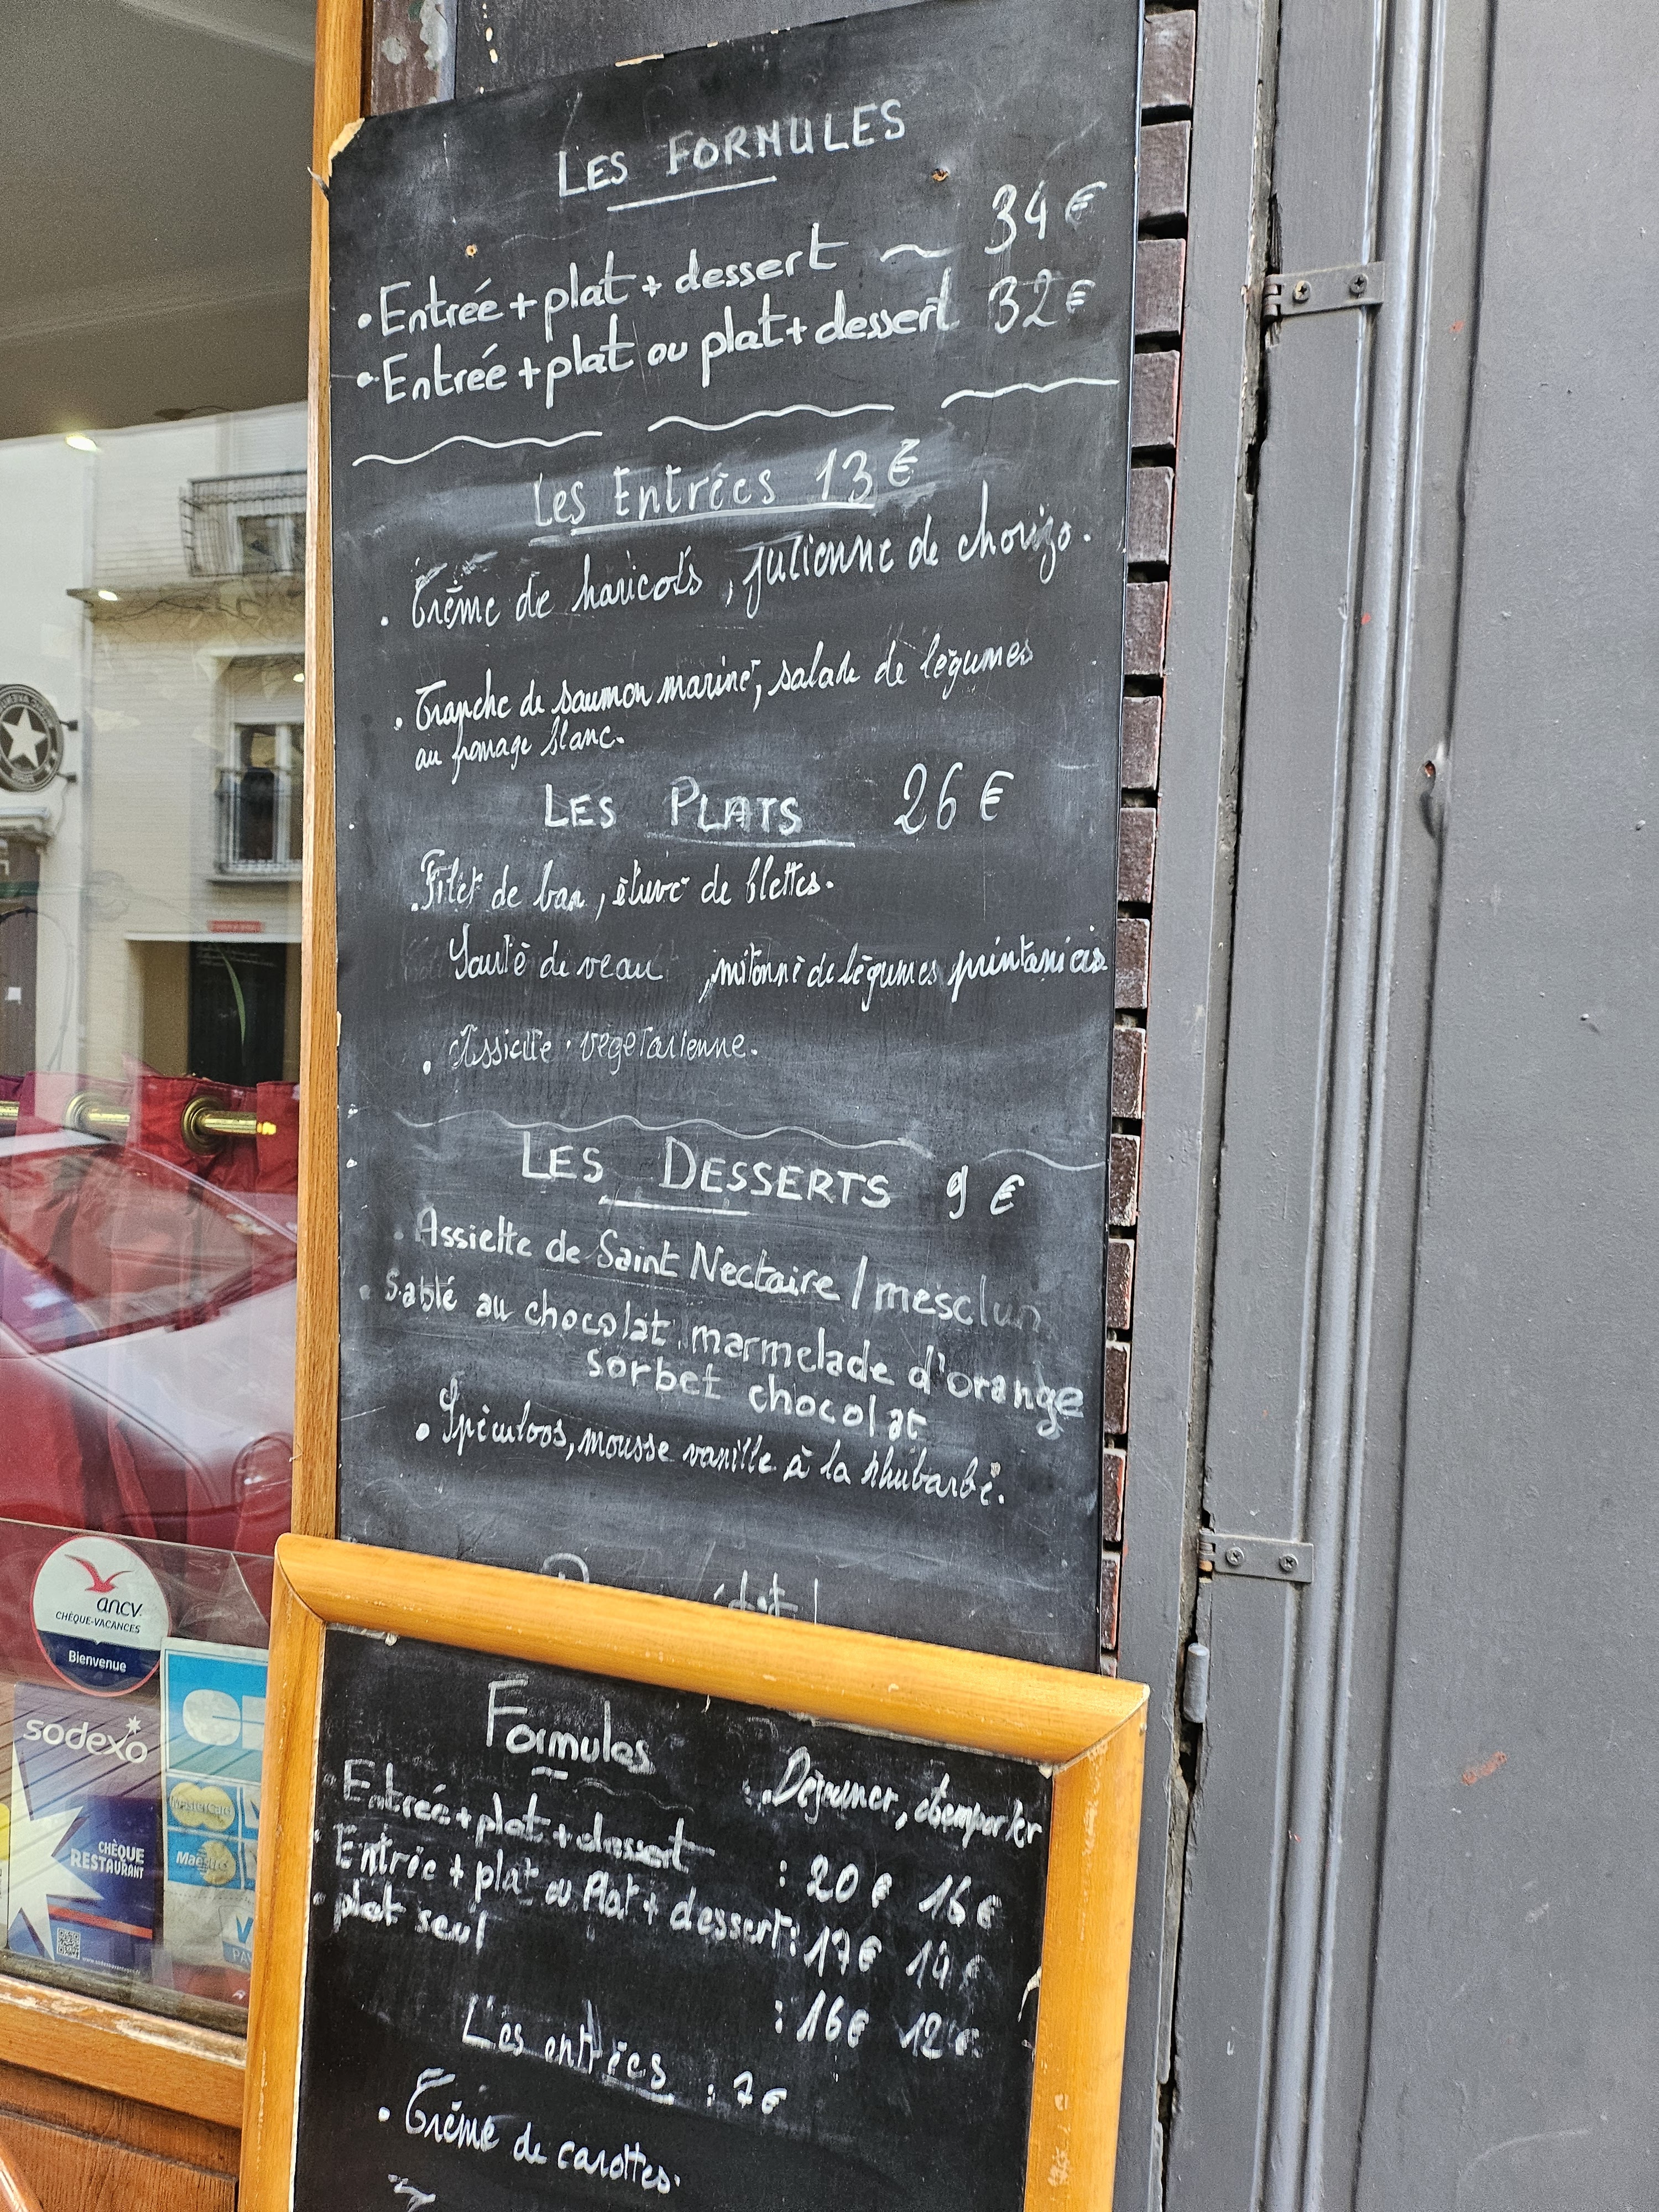 LES FORMULES
• Entrée + plat + dessert ~ 34 €
• Entrée + plat ou plat + dessert 32 €
Les Entrées 13 €
• Crème de haricots, julienne de chorizo.
• Tranche de saumon mariné, salade de légumes
au fromage blanc.
LES PLATS 26 €
• Filet de bar, étuvé de blettes.
Sauté de veau, mitonné de légumes printaniers
• Assiette végétarienne.
LES DESSERTS 9 €
• Assiette de Saint Nectaire / mesclun
• Sablé au chocolat, marmelade d'orange
sorbet chocolat
• Spéculoos, mousse vanille à la rhubarbe.
Formules
Déjeuner, à emporter
Entrée + plat + dessert : 20 € 16 €
• Entrée + plat ou Plat + dessert : 17 € 14 €
• plat seul : 16 € 12 €
Les entrées : 7 €
• Crème de carottes.
ancv
CHÈQUE-VACANCES
Bienvenue
sodexo
CHÈQUE
RESTAURANT
MasterCard
Maestro